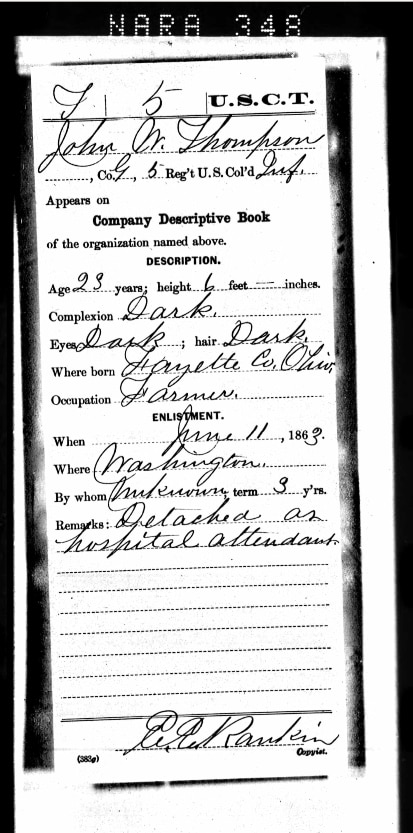 NARA 348
T | 5 | U.S.C.T.
John W. Thompson
, Co. G, 5 Reg't U.S. Col'd Inf.
Appears on
Company Descriptive Book
of the organization named above.
DESCRIPTION.
Age 23 years; height 6 feet — inches.
Complexion Dark.
Eyes Dark ; hair Dark.
Where born Fayette Co. Ohio,
Occupation Farmer.
ENLISTMENT.
When June 11, 1863.
Where Washington.
By whom Unknown, term 3 y'rs.
Remarks: Detached as
hospital attendant.
Rankin
(383g) Copyist.